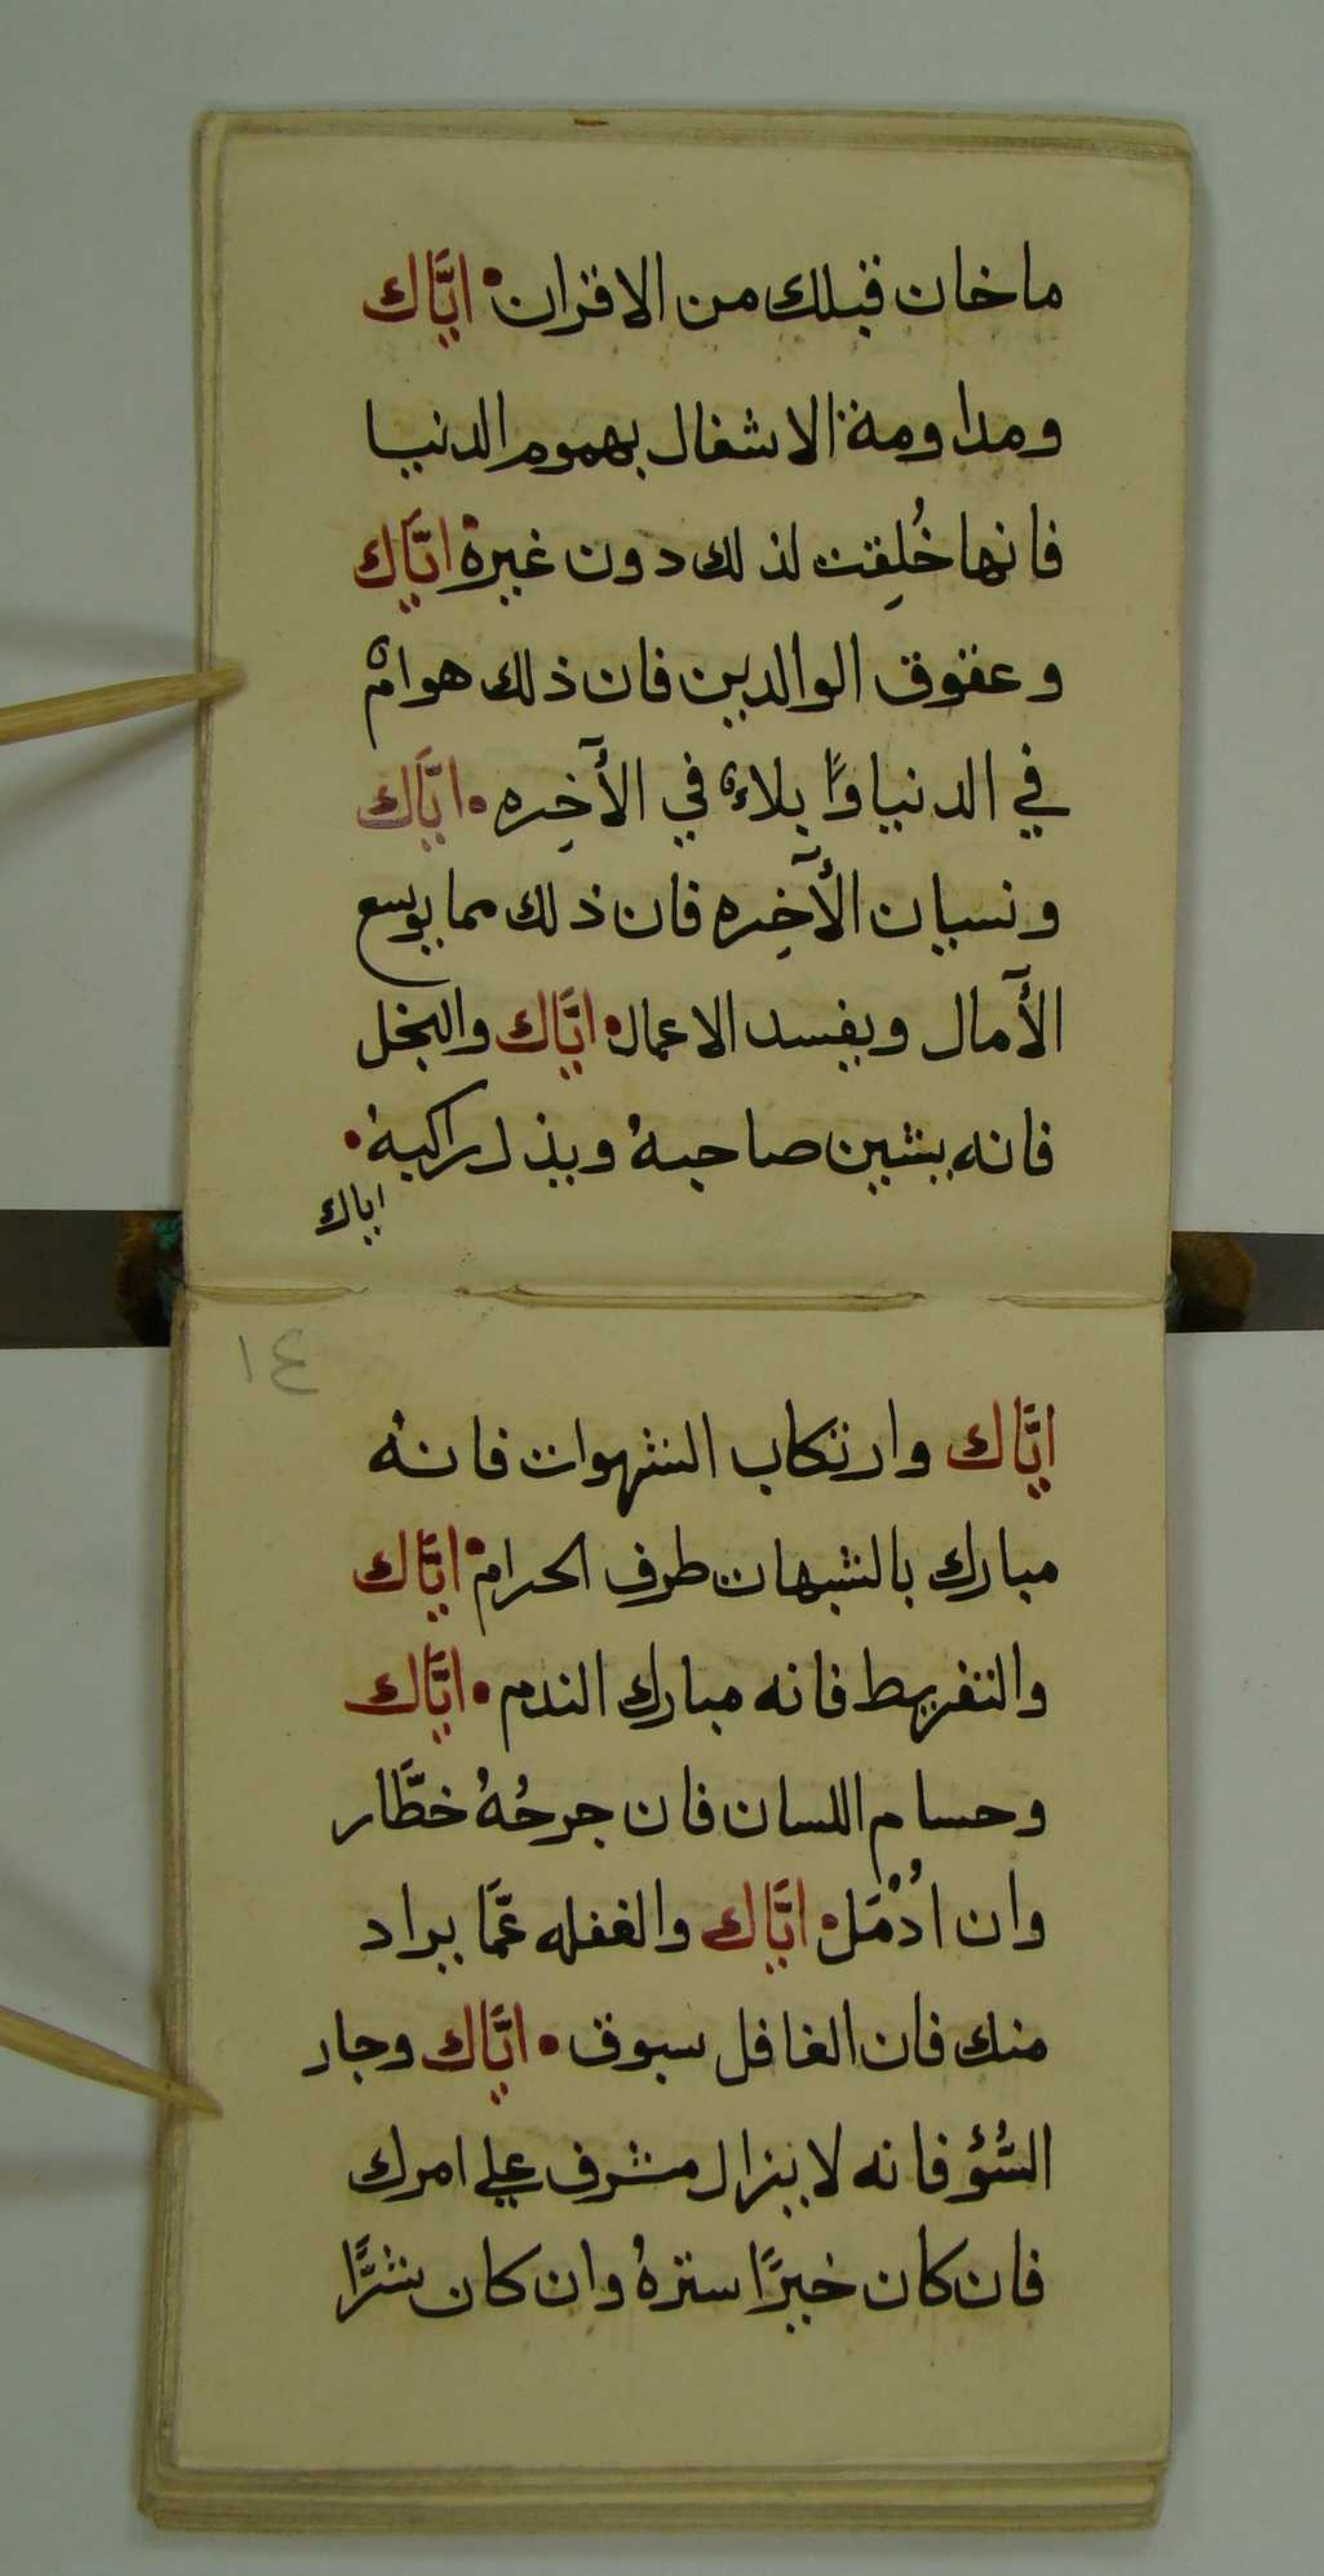 ما خان قبلك من الاقران • ايَّاك
ومداومة الاشغال بهموم الدنيا
فانها خُلِقت لذلك دون غيره • ايَّاك
وعقوق الوالدين فان ذلك هوامٌ
في الدنيا وًا بلاءٌ في الآخِره • ايَّاك
ونسيان الآخِره فان ذلك مما يوسع
الآمال ويفسد الاعمال • ايَّاك والبخل
فانه يشين صاحبهُ ويذل راكبهُ •
اياك
١٤
ايَّاك وارتكاب الشهوات فانهُ
مبارك بالشبهات طرف الحرام • ايَّاك
والتفريط فانه مبارك الندم • ايَّاك
وحسام اللسان فان جرحُهُ خطَّار
وان ادُمَل • ايَّاك والغفله عمَّا يراد
منك فان الغافل سبوق • ايَّاك وجار
السُّؤ فانه لا يزال مشرف علي امرك
فان كان خيرًا سترهُ وان كان شرًّا